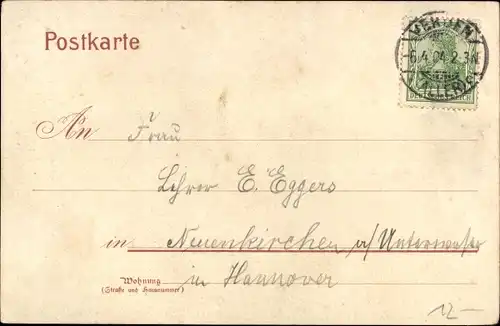 Postkarte
VERDEN
6.4.04. 2-3N.
(ALLER)
An Frau
Lehrer E. Eggers
in Neuenkirchen a/ Unterweser
Wohnung in Hannover
(Straße und Hausnummer)
12-